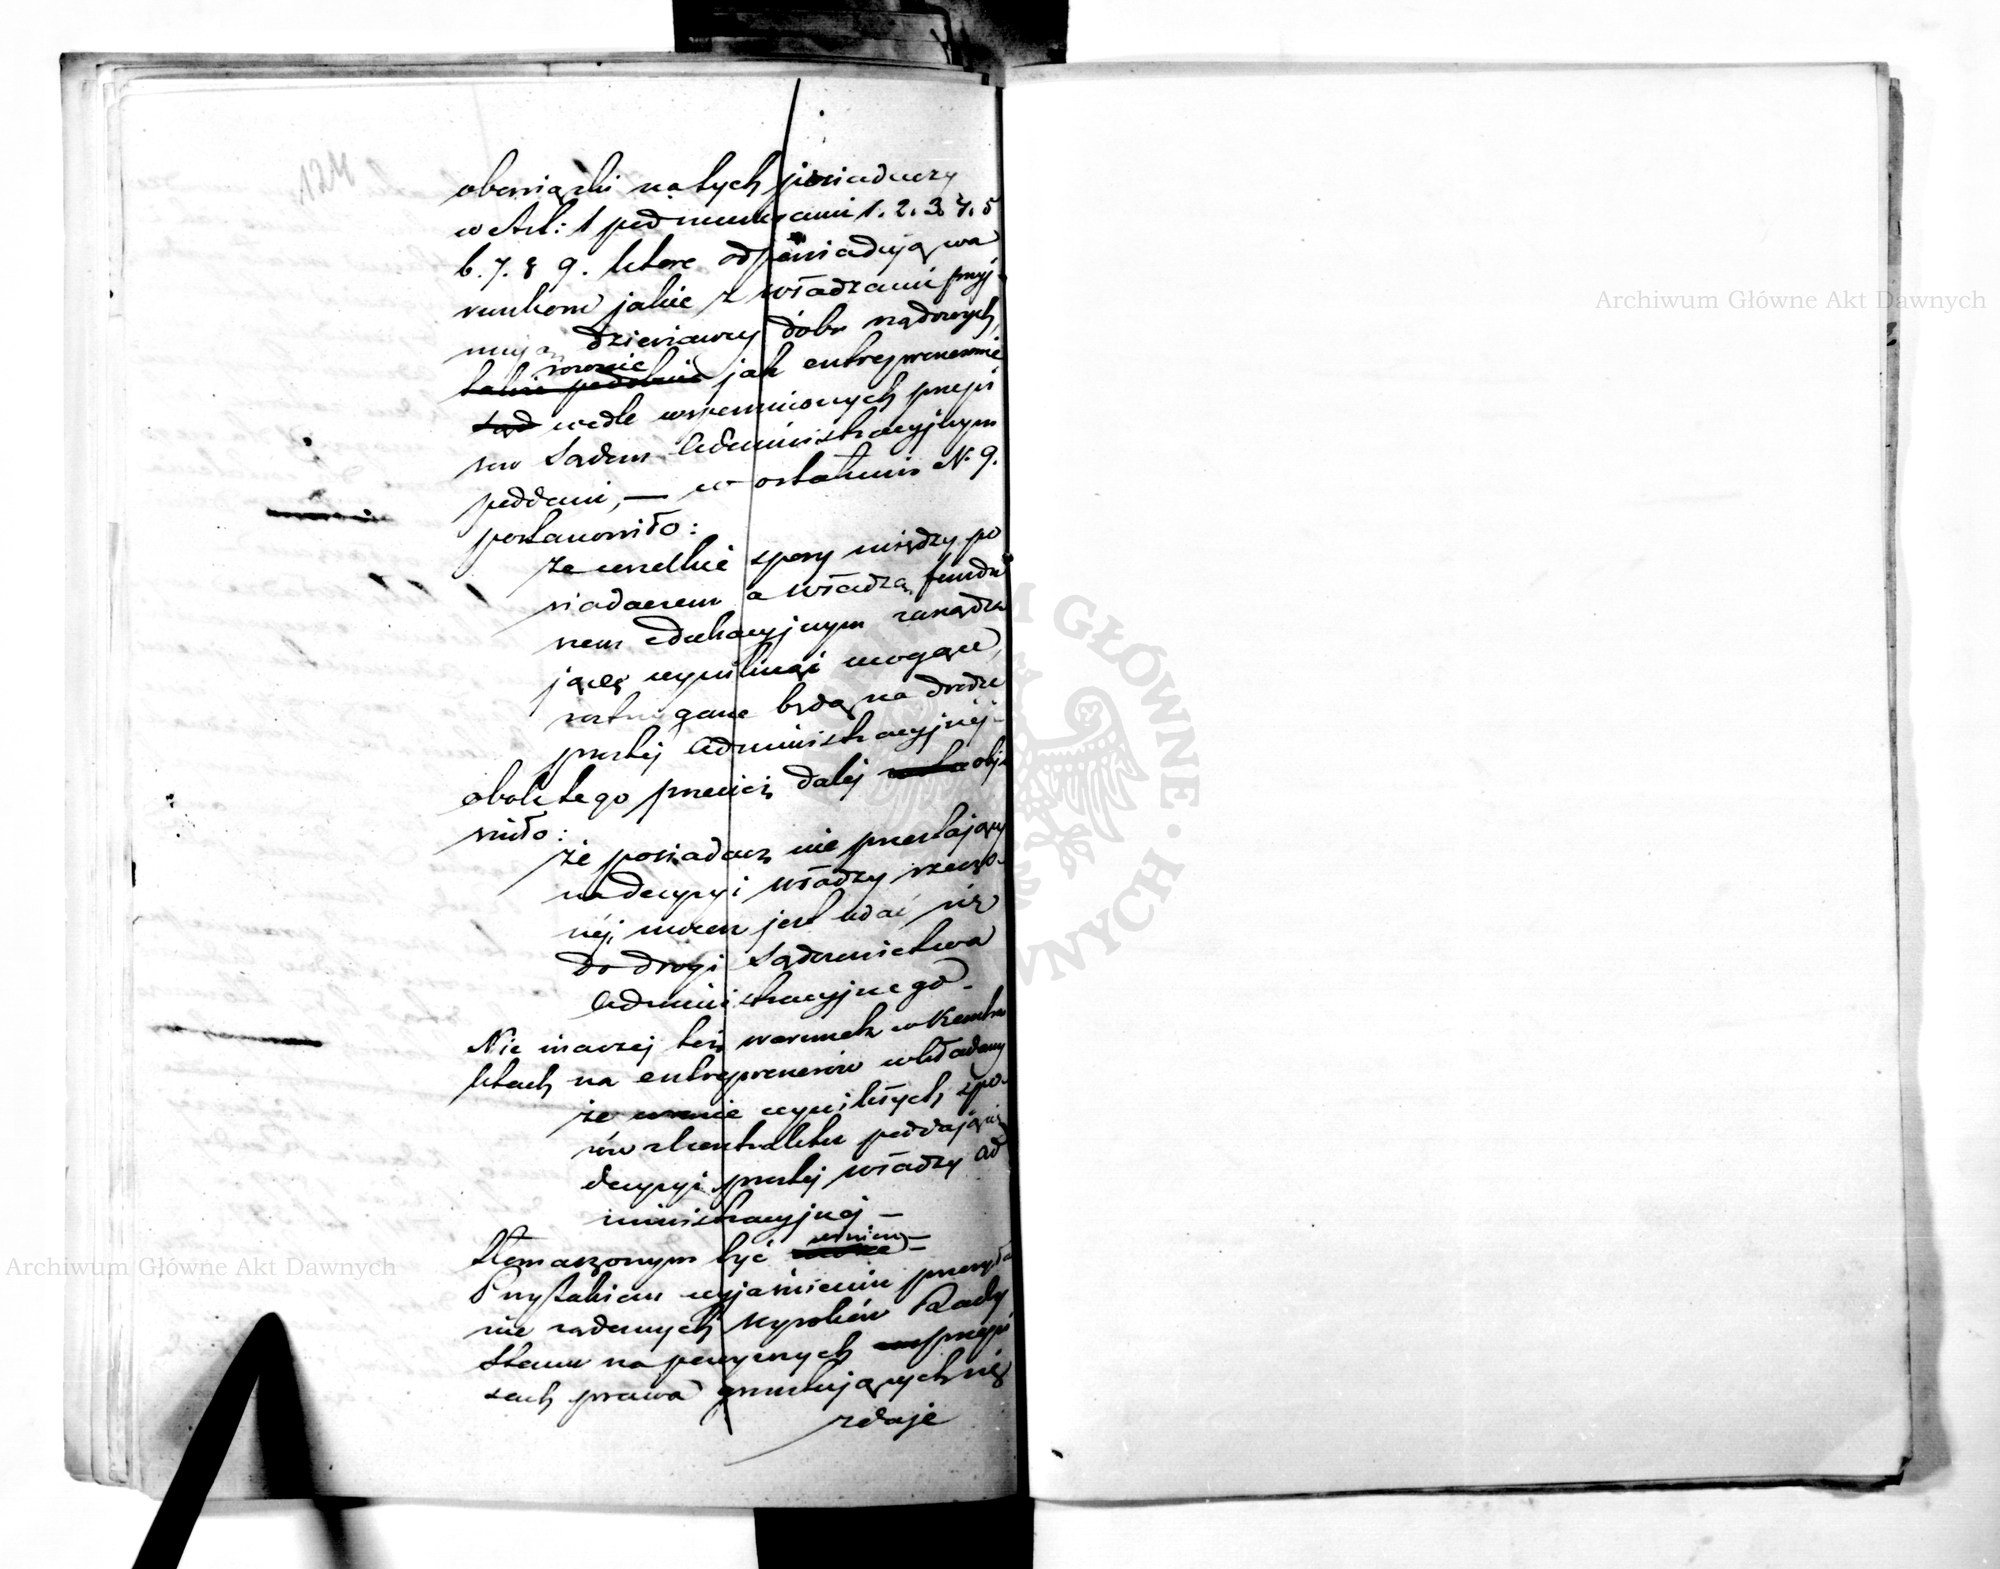 124
obowiązki na tych posiadaczy
w Art: 1 pod numerami 1. 2. 3. 4. 5
6. 7. 8 9. które odpowiadają wa
runkom jakie z władzami przyj
mują dzierżawcy dóbr rządowych,
równie
takie podobnie jak entreprenerowie
sąd wedle wspomnionych przepi
sów Sądom Administracyjnym
poddani, — w ostatnim N. 9.
postanowiło:
że wszelkie spory między po
siadaczem a władzą fundu
szem edukacyjnym zarządza
jącą wyniknąć mogące,
rostrzygane będą na drodze
prostej Administracyjnej
obok tego przecież dalej obja
wiło:
że posiadacz nie przestający
na decyzyi władzy rzeczo-
néj, mocen jest udać się
do drogi Sądownictwa
Administracyjnego.
Nie inaczej też warunek w Kontra
ktach na entreprenerów wkładany
że w razie wynikłych spo-
rów z kontraktu poddają się
decyzyi prostej władzy ad
ministracyjnej —
winien —
tłomaczonym być
Przy takiem wyjaśnieniu
nie rządowych wyroków Rady
Stanu na pewnych przepi
sach prawa gruntujących się
zdaje
Archiwum Główne Akt Dawnych
Archiwum Główne Akt Dawnych
ARCHIWUM GŁÓWNE AKT DAWNYCH